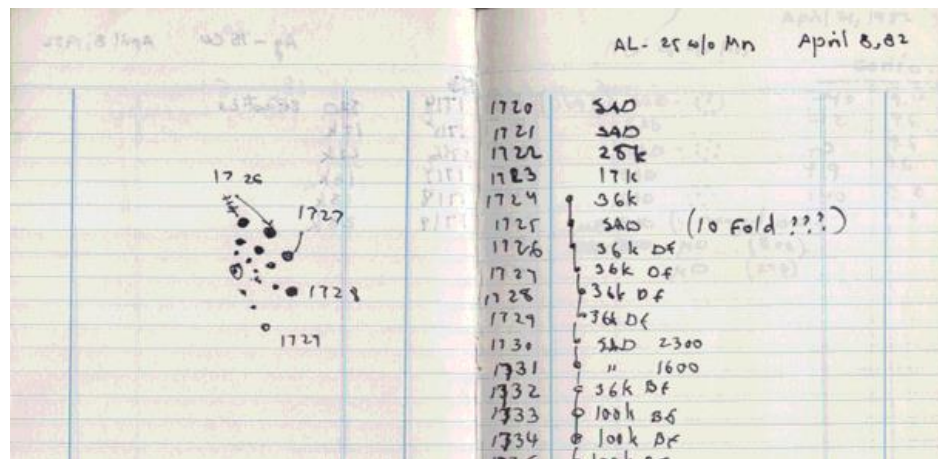 1726
1727
1728
1729
AL-25 w/o Mn April 8,82
1720 SAD
1721 SAD
1722 25k
1723 17k
1724 36k
1725 SAD (10 Fold ???)
1726 36k Df
1727 36k Df
1728 36k Df
1729 36k Df
1730 SAD 2300
1731 " 1600
1332 36k Bf
1333 100k Bf
1334 100k Bf